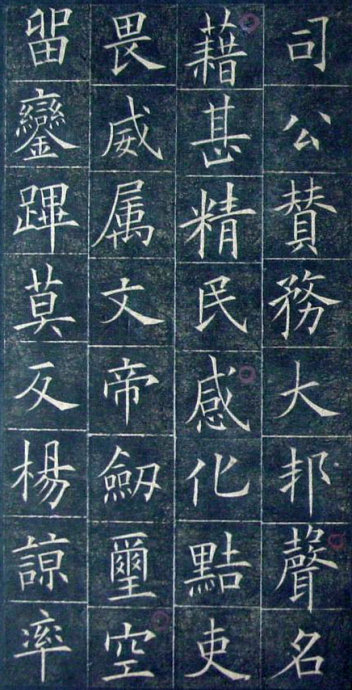 司公賛務大邦聲名
藉甚精民感化點吏
畏威属文帝劒璽空
留鑾蹕莫反楊諒率